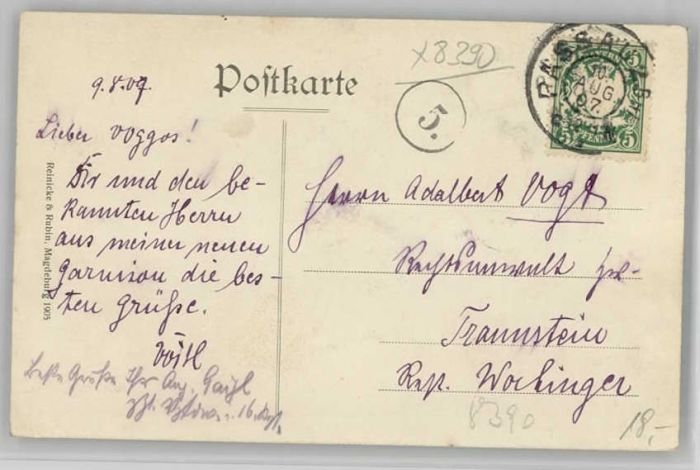 x8390
Postkarte
PASSAU
10.
AUG
07.
5
5
5.
9.8.07
Lieber Voggos!
Dir und den be-
kannten Herrn
aus meiner neuen
Garnison die bes-
ten Grüße.
Voitl
Beste Grüße Ihr Aug.
16.
Reinicke & Rubin, Magdeburg 1905
Herrn Adalbert Vogt
Rechtsanwalt
Traunstein
Rest. Wochinger
8390
18,-